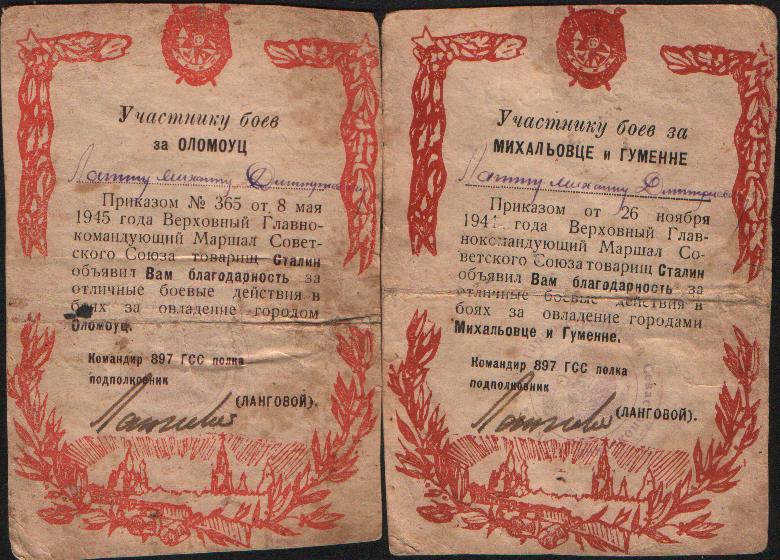 Участнику боев
за ОЛОМОУЦ
Приказом № 365 от 8 мая
1945 года Верховный Главно-
командующий Маршал Совет-
ского Союза товарищ Сталин
объявил Вам благодарность за
отличные боевые действия в
боях за овладение городом
Оломоуц.
Командир 897 ГСС полка
подполковник
(ЛАНГОВОЙ).
Участнику боев за
МИХАЛЬОВЦЕ и ГУМЕННЕ
Приказом от 26 ноября
1944 года Верховный Глав-
нокомандующий Маршал Со-
ветского Союза товарищ Сталин
объявил Вам благодарность за
отличные боевые действия в
боях за овладение городами
Михальовце и Гуменне.
Командир 897 ГСС полка
подполковник
(ЛАНГОВОЙ).